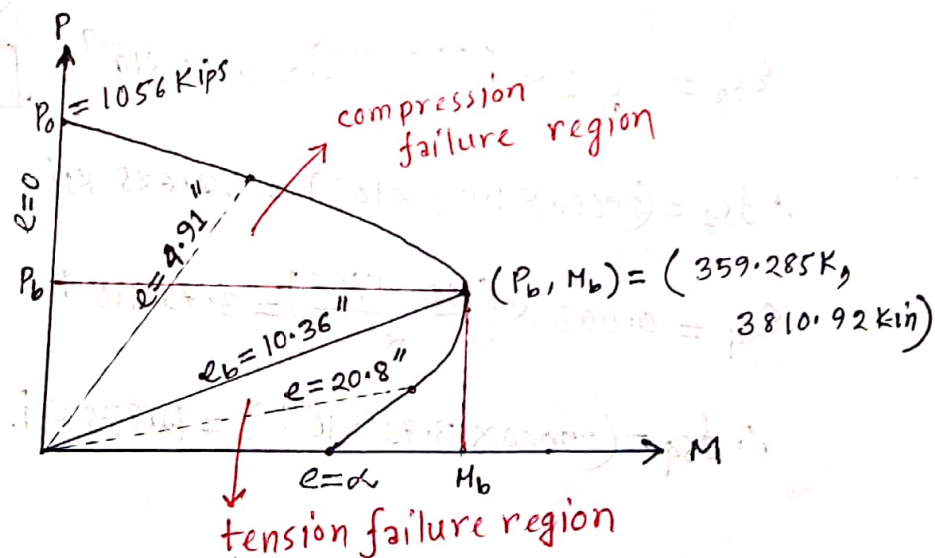 P
P₀ = 1056 Kips
compression
failure region
e=0
e=4.91"
P_b
(P_b, M_b) = ( 359.285K,
3810.92 kin)
e_b=10.36"
e=20.8"
e=∝
M_b
M
tension failure region